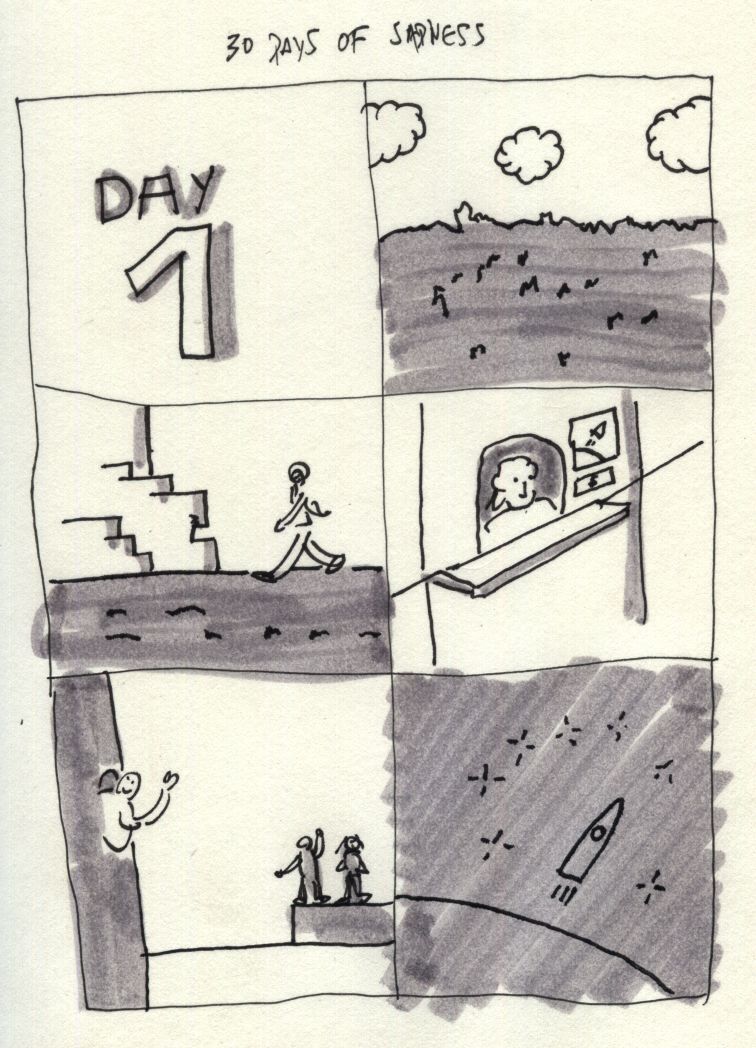 30 DAYS OF SADNESS
DAY
1